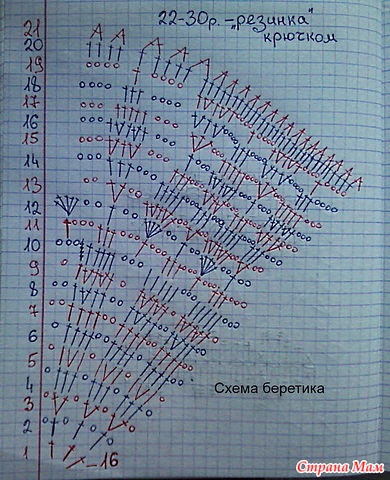 22-30р.-„резинка"
крючком
21
20
19
18
17
16
15
14
13
12
11
10
9
8
7
6
5
4
3
2
1
-16
Схема беретика
Страна Мам